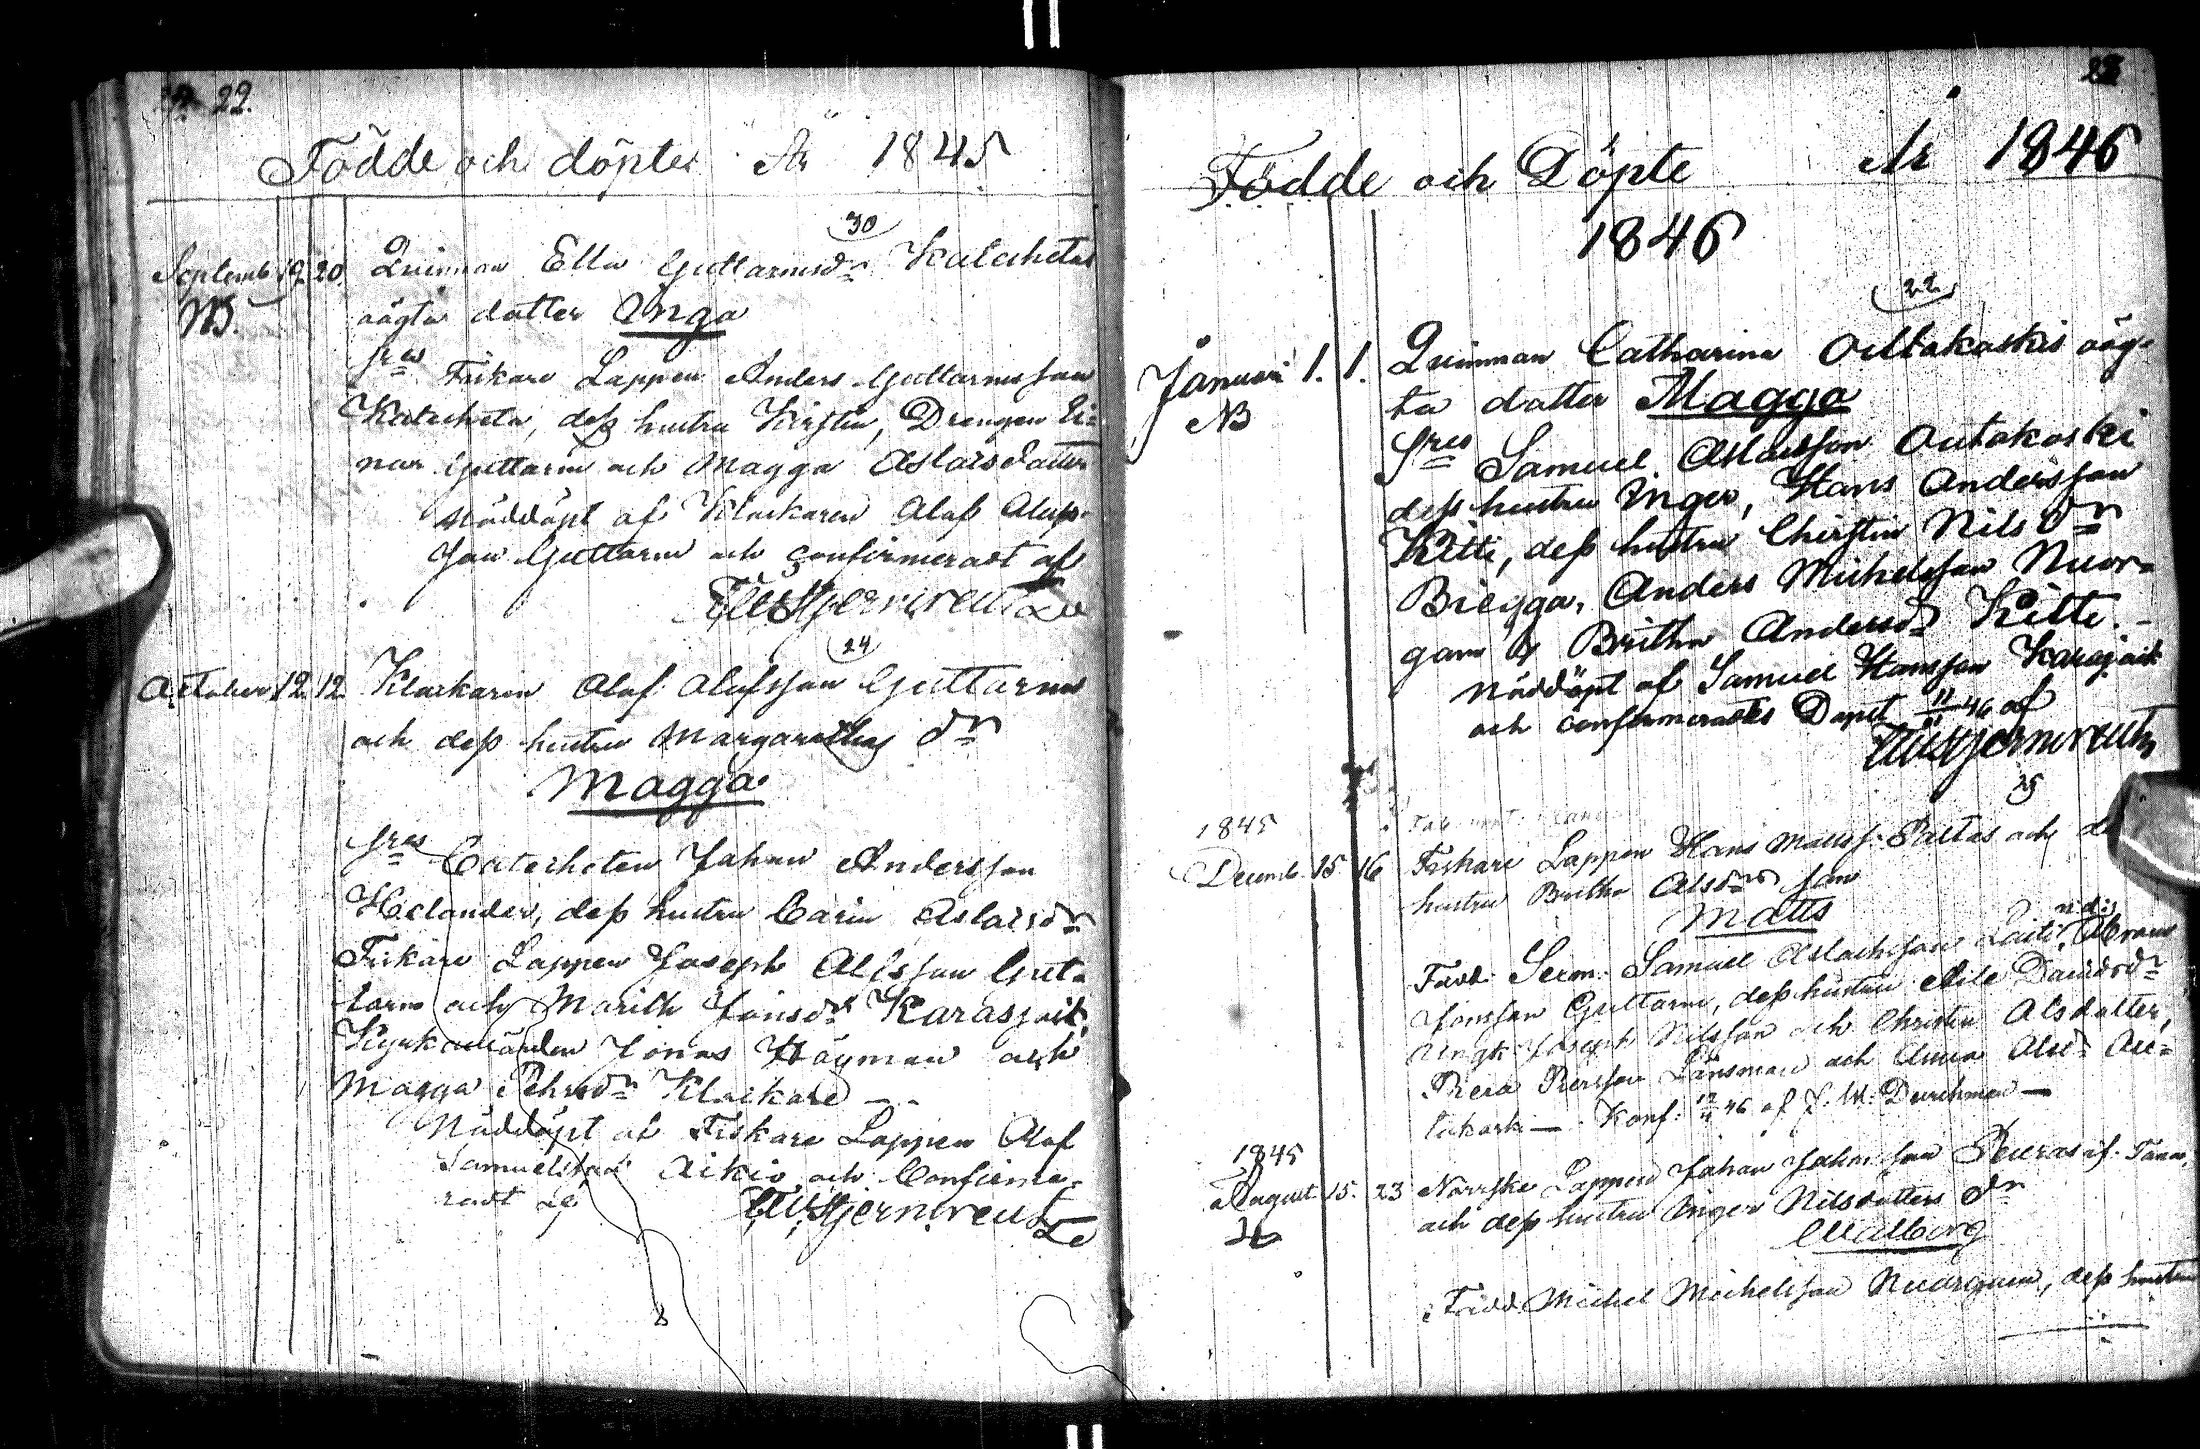 22.
Födde och döpte År 1845
30
Septemb 19. 20. Quinnan Ella Guttarmsdr Katecheta
NB. oägta dotter Inga
fres Fiskare Lappen Anders Guttarmsson
Katecheta, deß hustru Kirstin, Drengen Ei-
nar Guttarm och Magga Aslaksdatter
Nöddöpt af Klåckaren Olof Olofs-
son Guttorm och confirmeradt af
24
October 12. 12. Klockaren Olof Olofsson Guttorm
och deß hustru Margarethas dr
Magga
fres Catecheten Johan Andersson
Helander, deß hustru Carin Aslaksdr
Fiskare Lappen Joseph Olsson Gut-
torm och Marith Jonsdr Karasjok,
Kyrkovärden Jonas Högman och
Magga Pehrsdr Klockare
Nöddöpt af Fiskare Lappen Olof
Samuelsson Aikio och Confirme-
radt af
Födde och Döpte År 1846
1846
22
Januari 1. 1. Quinnan Catharina Outakoskis oäg-
NB ta dotter Magga
fres Samuel Aslaksson Outakoski
deß hustru Inger, Hans Andersson
Kitti, deß hustru Christin Nils dr
Biegga, Anders Michelsson Nuor-
gam & Britha Andersdr Kitti.
Nöddöpt af Samuel Hansson Karasjok
och confirmerades Dopet 46 af
25
1845
Decemb. 15 16 Fiskare Lappen Hans Mattss. Paltas och
hustru Britha Olsdrs son
Matts
Fadd. Samuel Aslachsson
Jonsson Guttorm, deß hustru Davidsdr
Ungk. Joseph Nilsson och Christin Olsdatter,
Persson Länsman och Anna Olsdr
Konf. 46 af J. W. Durchman
1845
August 15. 23 Norrske Lappen Johan Johnsson af Tana
och deß hustru Inger Nilsdatters dr
Walborg
Fadd. Michel Michelsson Nuorgam, deß hustru